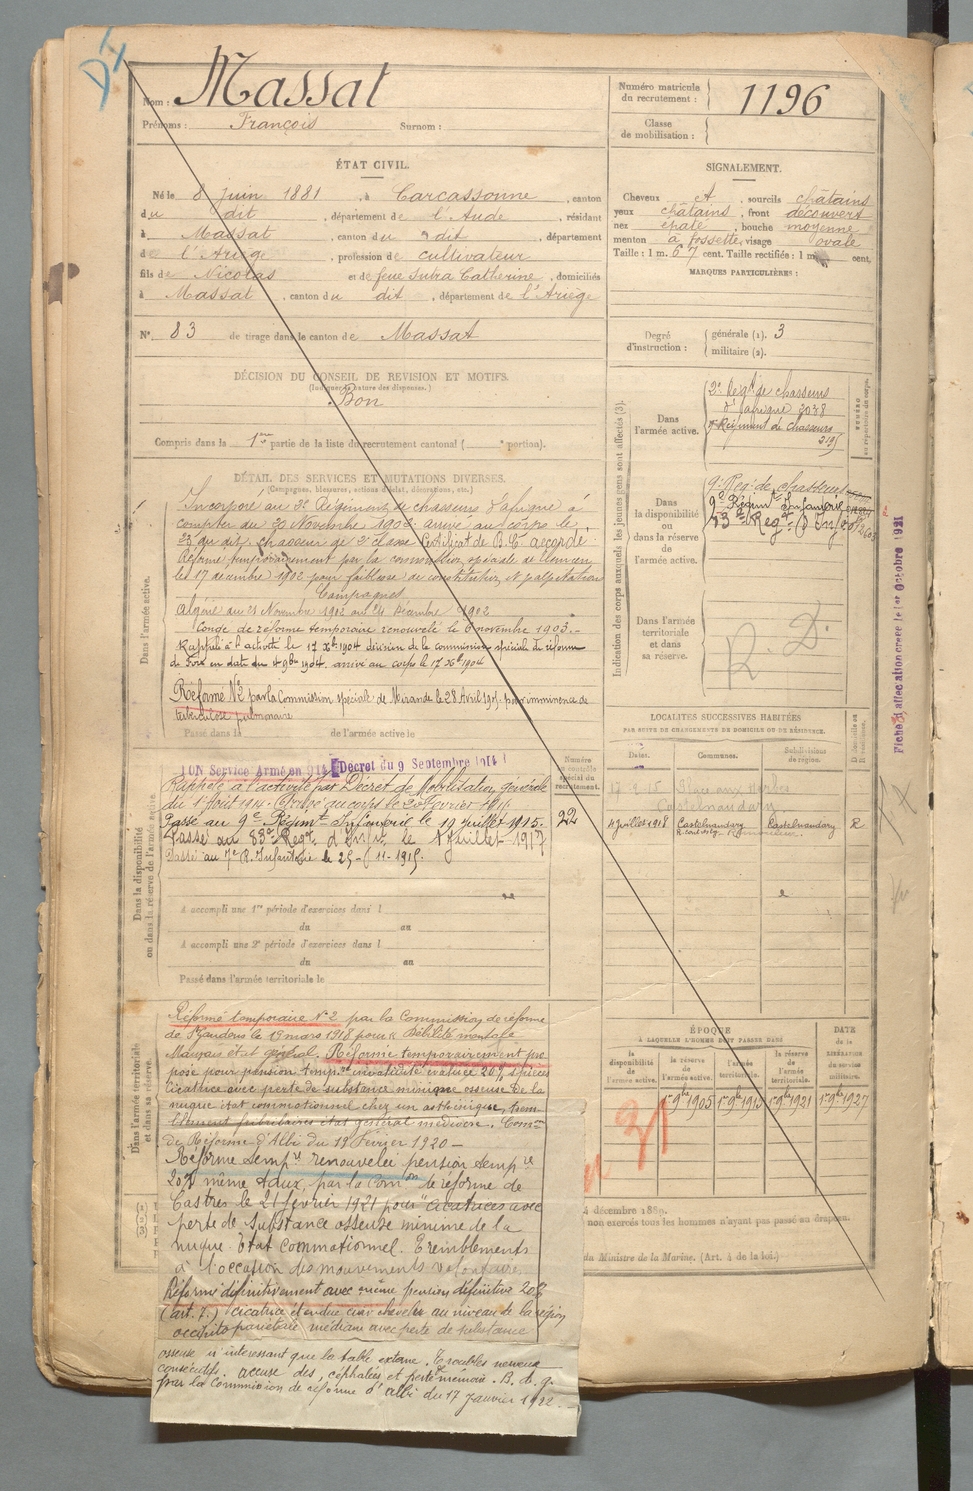 Nom : Massat
Prénoms : François Surnom :
Numéro matricule
du recrutement : 1196
Classe
de mobilisation :
ÉTAT CIVIL.
Né le 8 juin 1881, à Carcassonne, canton
du dit, département de l'Aude, résidant
à Massat, canton du dit, département
de l'Ariège, profession de cultivateur
fils de Nicolas et de feue Sutra Catherine, domiciliés
à Massat, canton du dit, département de l'Ariège
N° 83 de tirage dans le canton de Massat
SIGNALEMENT.
Cheveux et, sourcils châtains
yeux châtains, front découvert
nez épaté, bouche moyenne
menton à fossette, visage ovale
Taille : 1 m. 67 cent. Taille rectifiée : 1 m. cent.
MARQUES PARTICULIÈRES :
Degré
d'instruction :
générale (1). 3
militaire (2).
DÉCISION DU CONSEIL DE REVISION ET MOTIFS.
(Indiquer la nature des dispenses.)
Bon
Compris dans la 1re partie de la liste du recrutement cantonal ( portion).
DÉTAIL DES SERVICES ET MUTATIONS DIVERSES.
(Campagnes, blessures, actions d'éclat, décorations, etc.)
Dans l'armée active.
Incorporé au 2e Régiment de chasseurs d'afrique à
compter du 20 Novembre 1902 arrivé au corps le
23 du dit, chasseur de 2e classe Certificat de B. C. accordé.
Réformé temporairement par la commission spéciale de Tlemcen
le 17 décembre 1902 pour faiblesse de constitution et palpitation
Campagnes
Algérie du 21 Novembre 1902 au 24 Décembre 1902
Congé de réforme temporaire renouvelé le 6 novembre 1903.-
Rappelé à l'activité le 17 Xbre 1904 décision de la commission spéciale de réforme
de Foix en date du 4 9bre 1904, arrivé au corps le 17 Xbre 1904
Réformé N°2 par la Commission spéciale de Mirande le 28 Avril 1905 pour imminence de
tuberculose pulmonaire
Passé dans la de l'armée active le
Indication des corps auxquels les jeunes gens sont affectés (3).
Dans
l'armée active.
2e Régt de chasseurs
d'afrique 3038
9e Régiment de chasseurs
NUMÉRO
au répertoire du corps.
Dans
la disponibilité
ou
dans la réserve
de l'armée
active.
9e Reg. de chasseurs
9e Régimt Infanterie
83e Regt d'Inf
Dans l'armée
territoriale
et dans
sa réserve.
R. D.
Fiche d'affectation créée le 1er Octobre 1921
Dans la disponibilité
ou dans la réserve de l'armée active.
Service Armé en 914 Décret du 9 Septembre 1914
Rappelé à l'activité par Décret de Mobilisation générale
du 1er Août 1914. Arrivé au corps le 20 Février 1915
Passé au 9e Régimt Infanterie le 19 juillet 1915.
Passé au 83e Regt d'Infie le 1 Juillet 1917
Passé au 7e R. Infanterie le 25-11-1917
Numéro
au contrôle
spécial du
recrutement.
22
A accompli une 1re période d'exercices dans l
du au
A accompli une 2e période d'exercices dans l
du au
Passé dans l'armée territoriale le
LOCALITÉS SUCCESSIVES HABITÉES
PAR SUITE DE CHANGEMENTS DE DOMICILE OU DE RÉSIDENCE.
Dates. Communes. Subdivisions
de région. Domicile ou
Résidence.
Place aux Herbes
Castelnaudary
4 juillet 1918 Castelnaudary Castelnaudary R
Dans l'armée territoriale
et dans sa réserve.
Réformé temporaire N°2 par la Commission de réforme
de St Gaudens le 19 mars 1918 pour « Débilité mentale
Mauvais état général. Réformé temporairement pro
posé pour pension tempre invalidité évaluée 20% séquelles
cicatrice avec perte de substance minime osseuse de la
nuque état commotionnel chez un asthénique, trem-
blement fibrillaires état général médiocre. Comon
de Réforme d'Albi du 18 Février 1920 -
Réforme tempre renouvelée pension tempre
20% même taux, par la Comon de réforme de
Castres le 21 février 1921 pour "cicatrices avec
perte de substance osseuse minime de la
nuque. Etat commotionnel. Tremblements
à l'occasion des mouvements volontaires.
Réformé définitivement avec même pension définitive 20%
(art. 7.) cicatrice étendue cuir chevelu au niveau de la région
occipito pariétale médiane avec perte de substance
osseuse n'intéressant que la table externe. Troubles nerveux
consécutifs. accuse des céphalées et perte mémoire. B. d. g.
par la Commission de réforme d'Albi du 17 Janvier 1922.-
ÉPOQUE
À LAQUELLE L'HOMME DOIT PASSER DANS
la
disponibilité
de l'armée
active. la réserve
de l'armée
active. l'armée
territoriale. la réserve
de l'armée
territoriale. DATE
de la
LIBÉRATION
du service
militaire.
1er 9bre 1905 1er 9bre 1915 1er 9bre 1921 1er 9bre 1927
31
décembre 1889.
non exercés tous les hommes n'ayant pas passé au drapeau.
du Ministre de la Marine. (Art. 4 de la loi.)